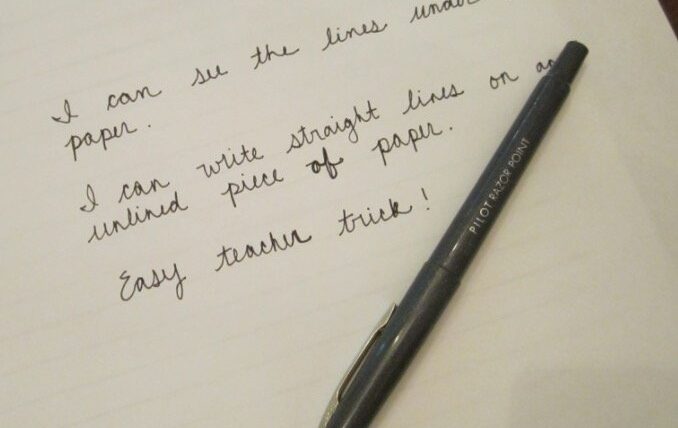 I can see the lines under
paper.
I can write straight lines on an
unlined piece of paper.
Easy teacher trick!
PILOT RAZOR POINT